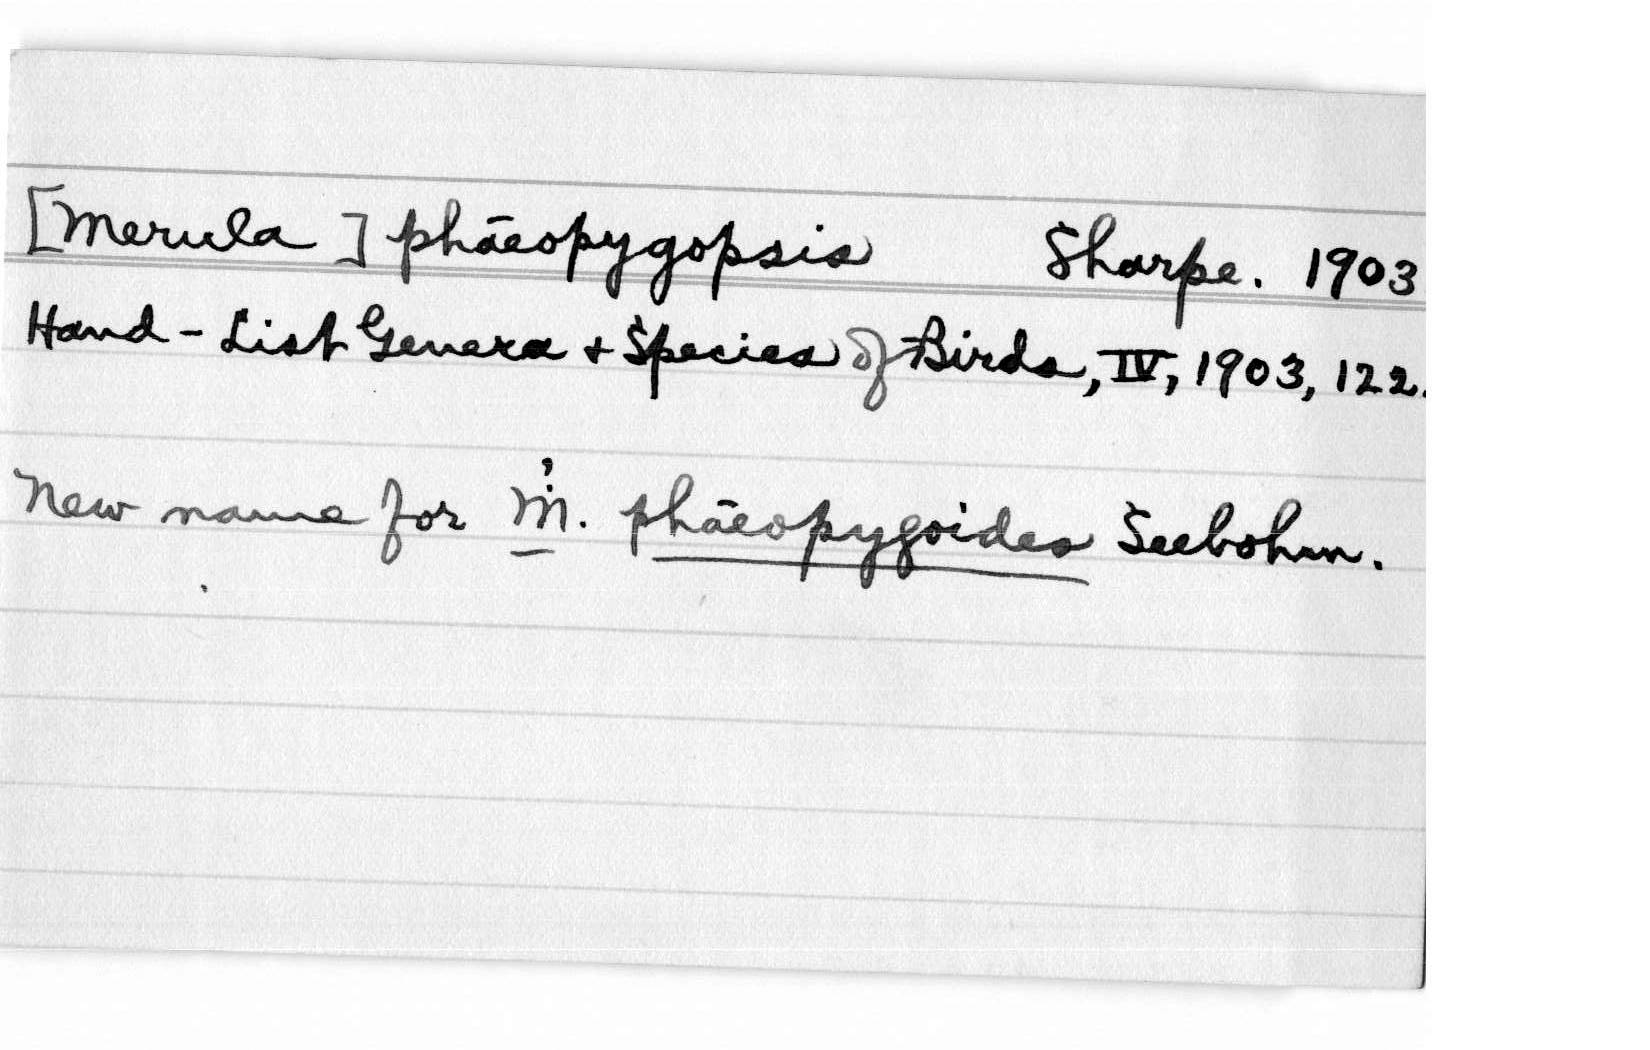 [Merula] phāeopygopsis Sharpe. 1903
Hand-List Genera + Species of Birds, IV, 1903, 122.
New name for M. phāeopygoides Seebohm.